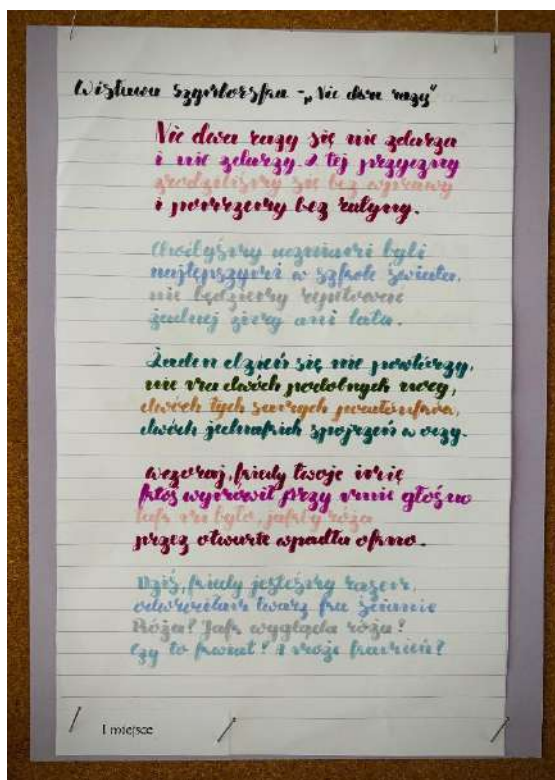 Wisława Szymborska - „Nic dwa razy”
Nic dwa razy się nie zdarza
i nie zdarzy. Z tej przyczyny
zrodziliśmy się bez wprawy
i pomrzemy bez rutyny.
Choćbyśmy uczniami byli
najtępszymi w szkole świata,
nie będziemy repetować
żadnej zimy ani lata.
Żaden dzień się nie powtórzy,
nie ma dwóch podobnych nocy,
dwóch tych samych pocałunków,
dwóch jednakich spojrzeń w oczy.
Wczoraj, kiedy twoje imię
ktoś wymówił przy mnie głośno
tak mi było, jakby róża
przez otwarte wpadła okno.
Dziś, kiedy jesteśmy razem,
odwróciłam twarz ku ścianie
Róża? Jak wygląda róża?
Czy to kwiat? A może kamień?
I miejsce